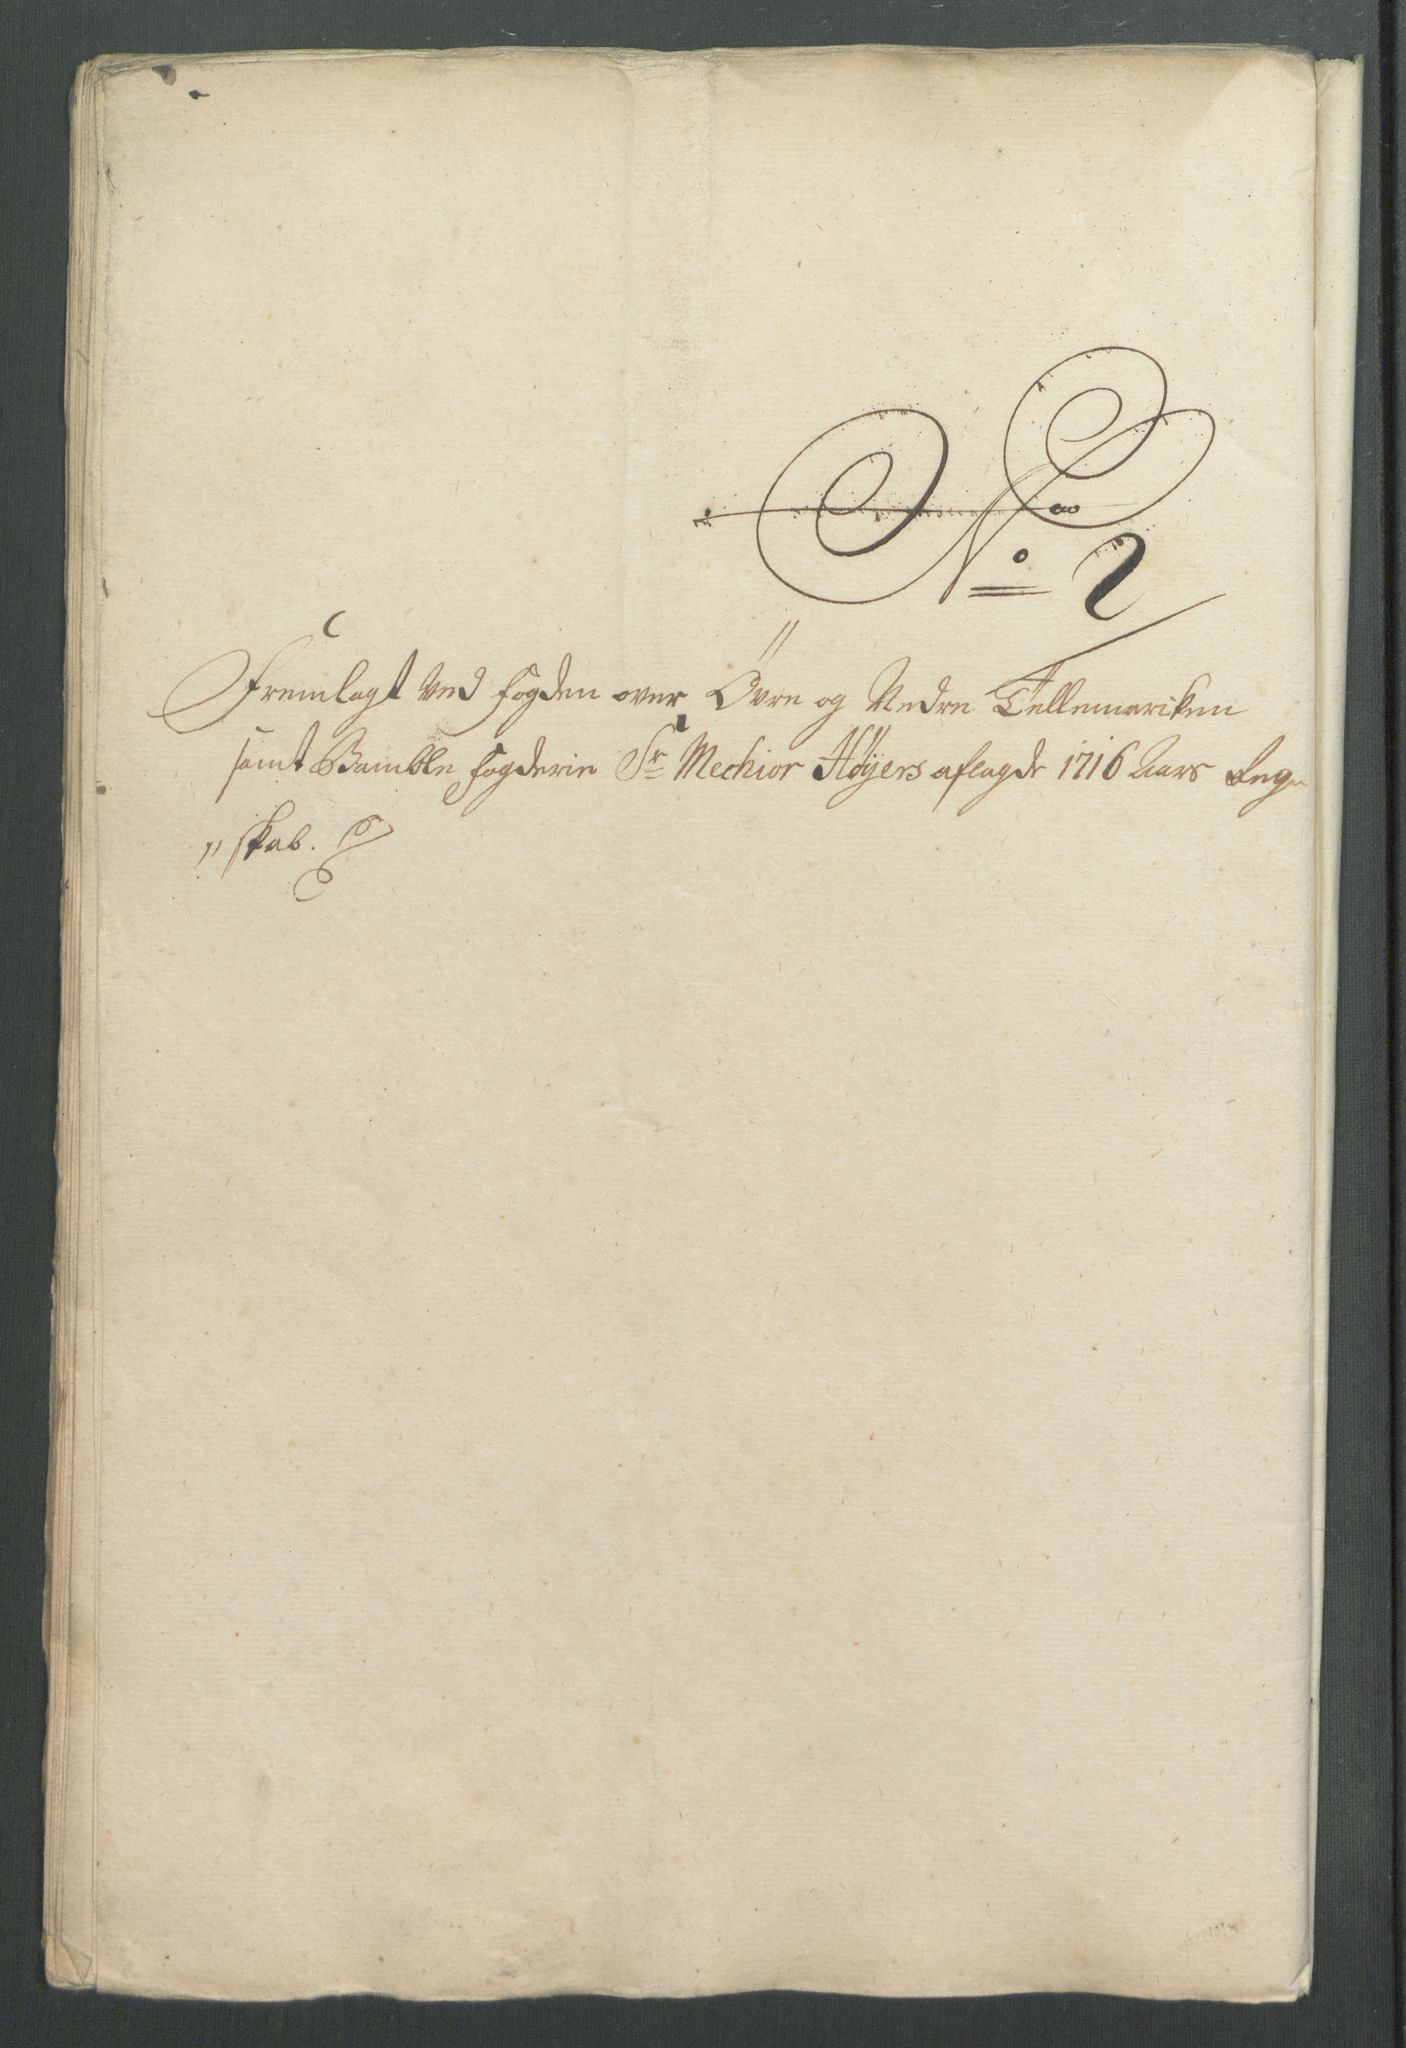 No. 2
Fremlagt ved Fogden over Övre og Nedre Tellemarcken
samt Bamble Fogderie Sr Mechior Høÿers aflagde 1716 Aars Reg-
"skab.